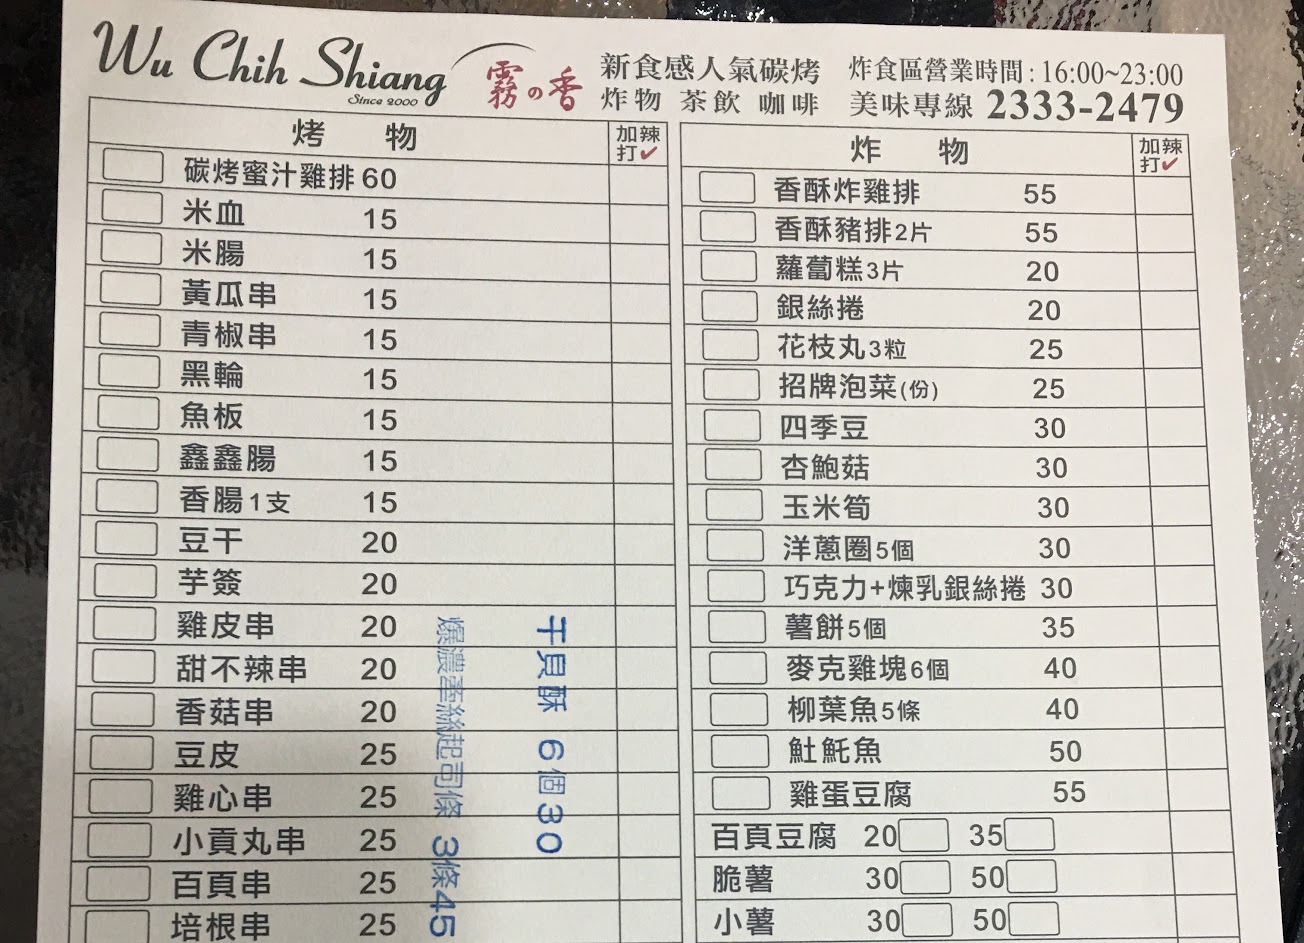 Wu Chih Shiang
Since 2000
霧の香
新食感人氣碳烤
炸物 茶飲 咖啡
炸食區營業時間:16:00~23:00
美味專線 2333-2479
烤 物
加辣
打✓
碳烤蜜汁雞排 60
米血 15
米腸 15
黃瓜串 15
青椒串 15
黑輪 15
魚板 15
鑫鑫腸 15
香腸1支 15
豆干 20
芋簽 20
雞皮串 20
甜不辣串 20
香菇串 20
豆皮 25
雞心串 25
小貢丸串 25
百頁串 25
培根串 25
干貝酥 6個30
爆濃牽絲起司條 3條45
炸 物
加辣
打✓
香酥炸雞排 55
香酥豬排2片 55
蘿蔔糕3片 20
銀絲捲 20
花枝丸3粒 25
招牌泡菜(份) 25
四季豆 30
杏鮑菇 30
玉米筍 30
洋蔥圈5個 30
巧克力+煉乳銀絲捲 30
薯餅5個 35
麥克雞塊6個 40
柳葉魚5條 40
魠魠魚 50
雞蛋豆腐 55
百頁豆腐 20 35
脆薯 30 50
小薯 30 50